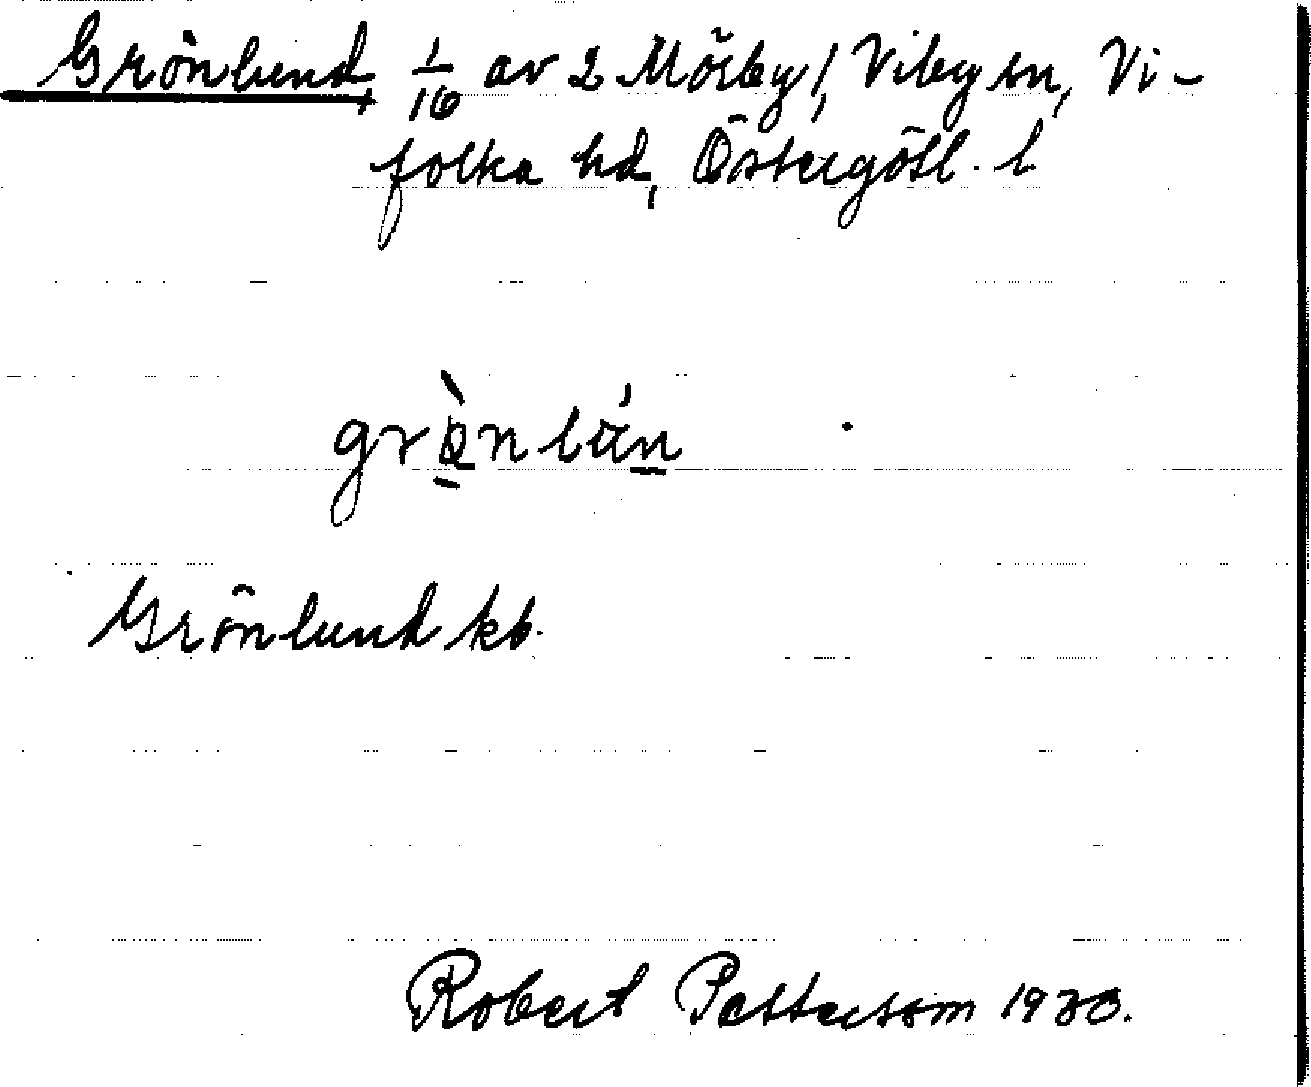 Grönlund, 1/16 av 2 Mörby, Viby sn, Vi-
folka hd, Östergötl. l
Grönlund kb.
Robert Pettersson 1933.